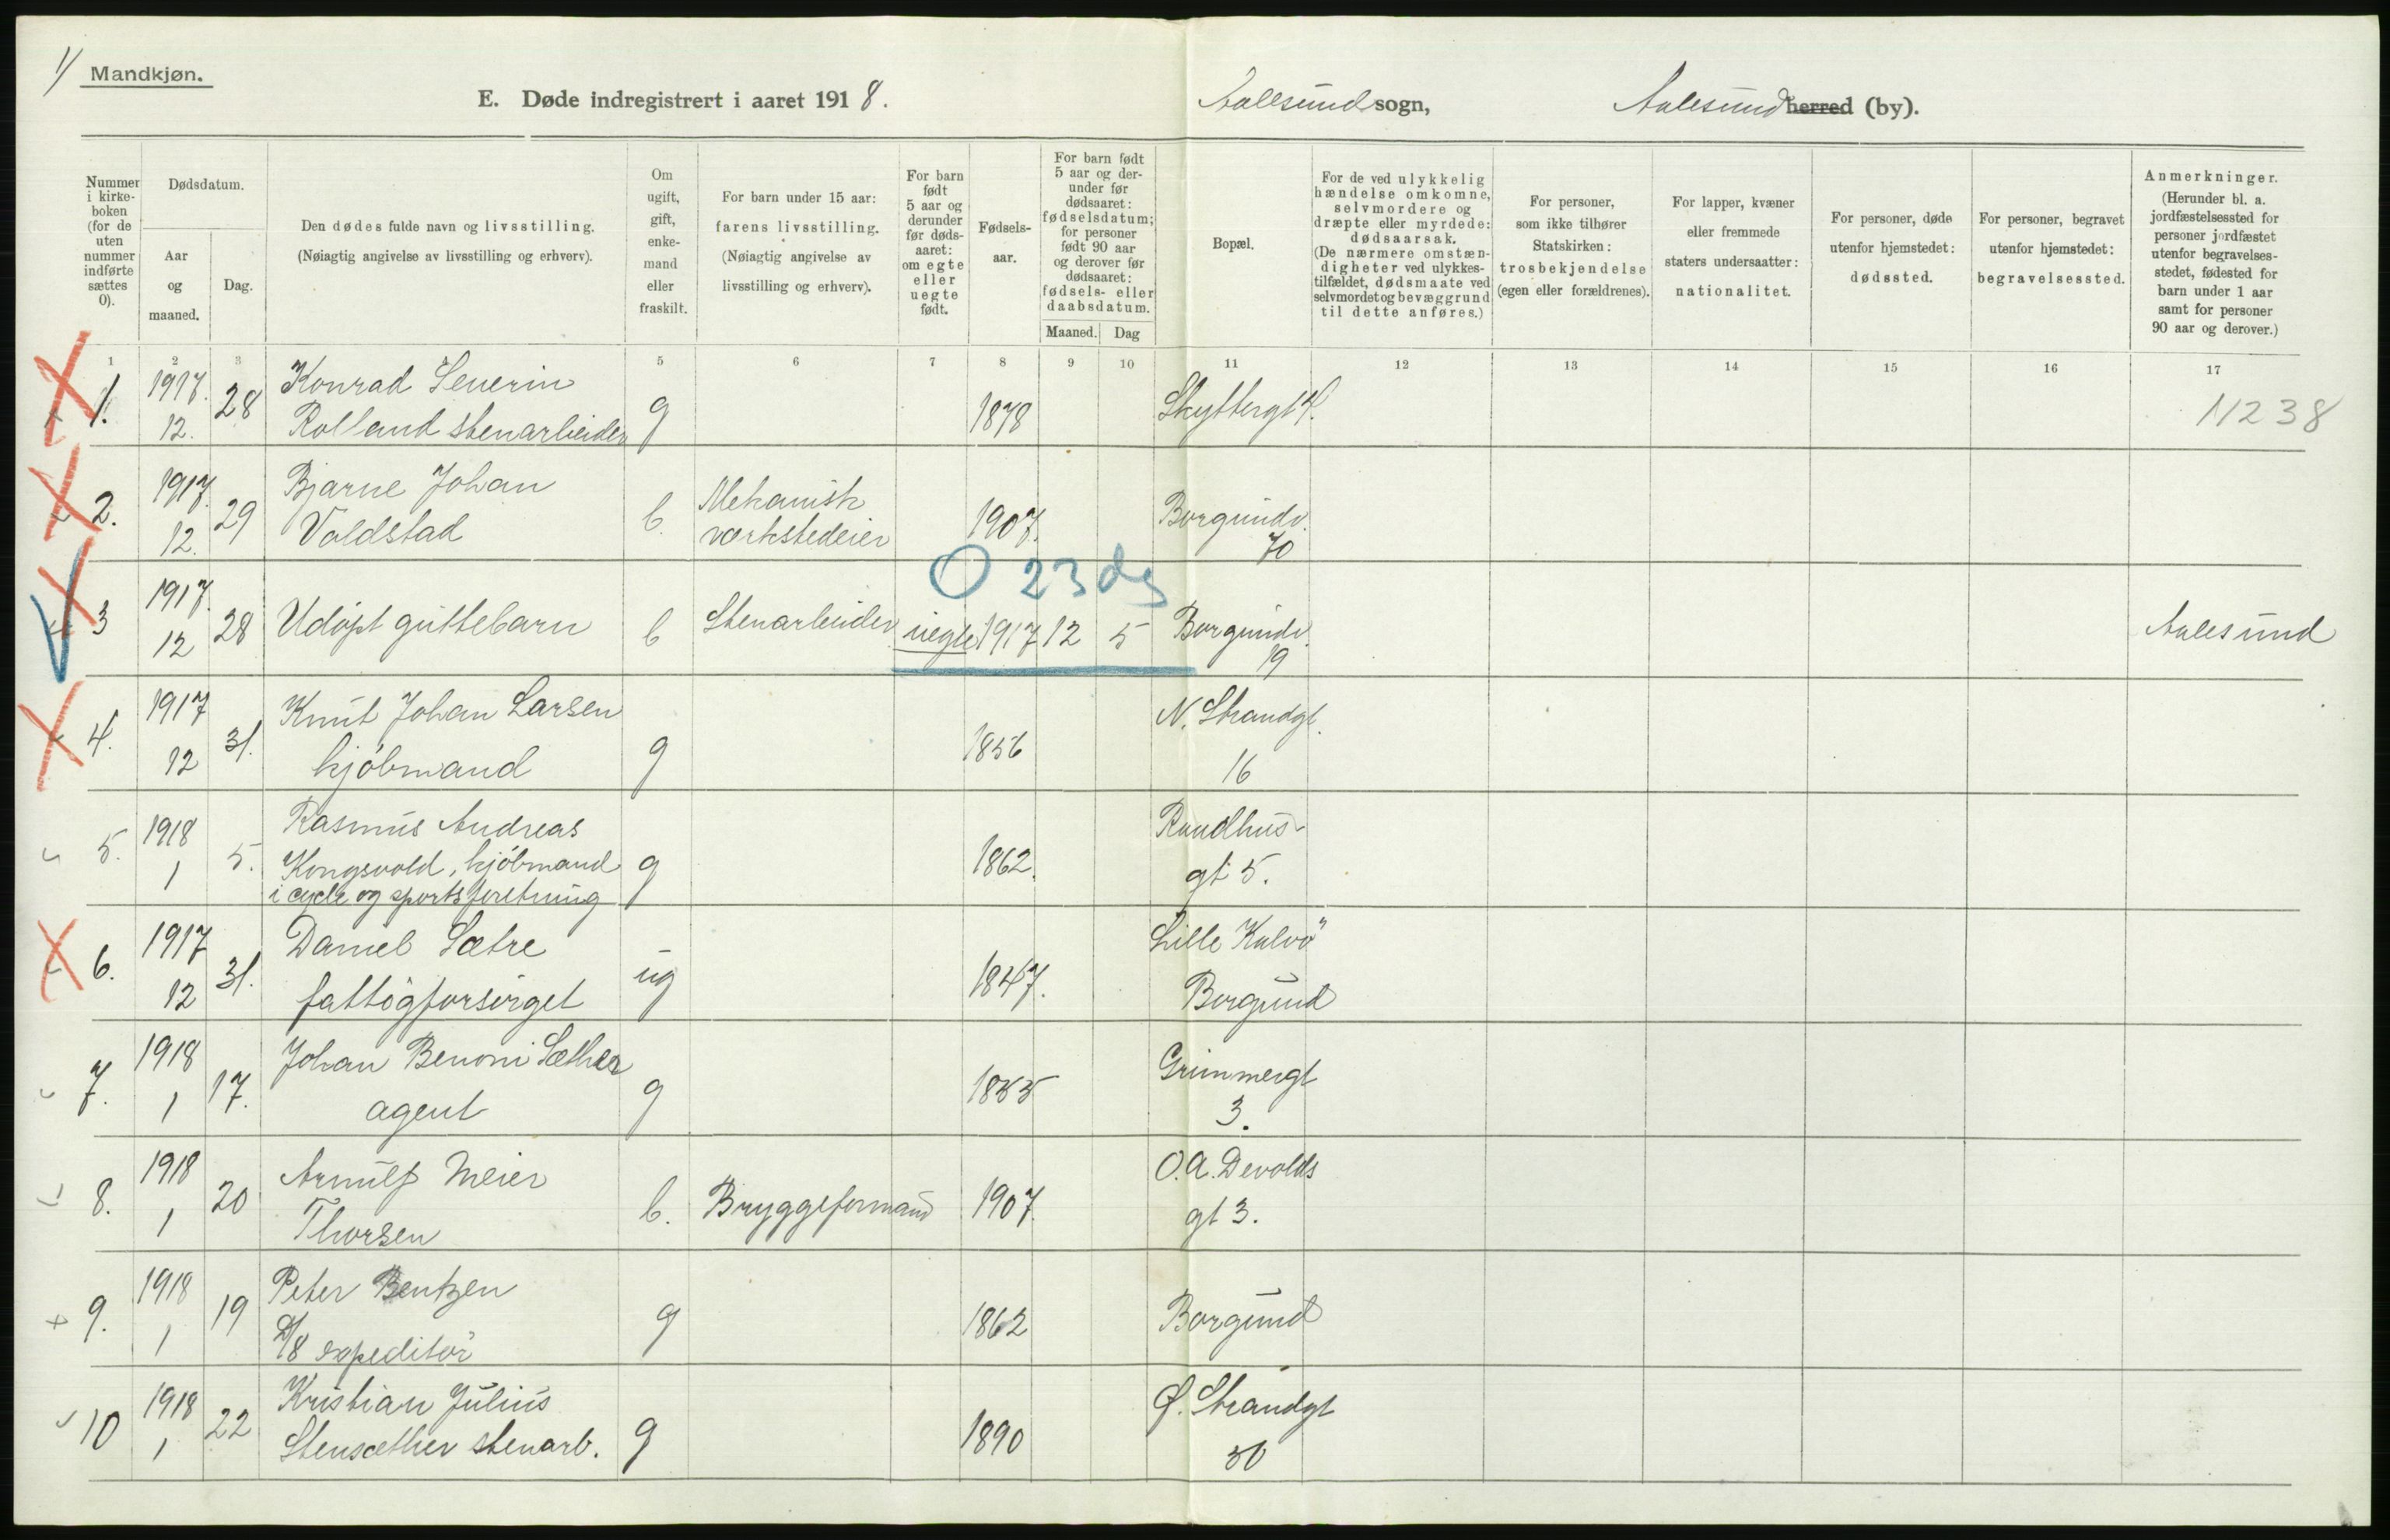 1/
Mandkjøn.
E. Døde indregistrert i aaret 1918.
Aalesund sogn,
Aalesund herred (by).
Nummer i kirke-boken (for de uten nummer indførte sættes 0).
Dødsdatum.
Aar og maaned.
Dag.
Den dødes fulde navn og livsstilling.
(Nøiagtig angivelse av livsstilling og erhverv).
Om ugift, gift, enke-mand eller fraskilt.
For barn under 15 aar:
farens livsstilling.
(Nøiagtig angivelse av livsstilling og erhverv).
For barn født 5 aar og derunder før døds-aaret: om egte eller uegte født.
Fødsels-aar.
For barn født 5 aar og der-under før dødsaaret: fødselsdatum; for personer født 90 aar og derover før dødsaaret: fødsels- eller daabsdatum.
Maaned.
Dag
Bopæl.
For de ved ulykkelig hændelse omkomne, selvmordere og dræpte eller myrdede: dødsaarsak.
(De nærmere omstæn-digheter ved ulykkes-tilfældet, dødsmaate ved selvmordet og bevæggrund til dette anføres.)
For personer, som ikke tilhører Statskirken: trosbekjendelse (egen eller forældrenes).
For lapper, kvæner eller fremmede staters undersaatter: nationalitet.
For personer, døde utenfor hjemstedet: dødssted.
For personer, begravet utenfor hjemstedet: begravelsessted.
Anmerkninger.
(Herunder bl. a. jordfæstelsessted for personer jordfæstet utenfor begravelses-stedet, fødested for barn under 1 aar samt for personer 90 aar og derover.)
1 2 3 5 6 7 8 9 10 11 12 13 14 15 16 17
1. 1917. 12. 28 Konrad Severin
Rolland stenarbeider g 1878 Skyttergt 4. N238
2. 1917. 12. 29 Bjarne Johan
Voldstad b. Mekanisk
værkstedeier 1907. Borgundv.
70
O 23 dg
3 1917. 12 28 Udøpt guttebarn b Stenarbeider uegte 1917 12 5 Borgundv.
19 Aalesund
4. 1917 12 31. Knut Johan Larsen
kjöbmand g 1856 N. Strandgt.
16
5. 1918 1 5. Rasmus Andreas
Kongsvold, kjöbmand
i cycle og sportsforetning g 1862. Rundhus-
gt 5.
6. 1917 12 31. Daniel Sætre
fattigforsörget ug 1847. Lille Kalvö
Borgund
7. 1918 1 17. Johan Benoni Sæther
agent g 1855 Grimmergt
3.
8. 1918 1 20 Arnulf Meier
Thorsen b. Bryggeformand 1907. O.A. Devolds
gt 3.
9. 1918 1 19 Peter Bentzen
D/S expeditör g 1862 Borgund
10 1918 1 22 Kristian Julius
Stensæther stenarb. g 1890 Ø. Strandgt
30